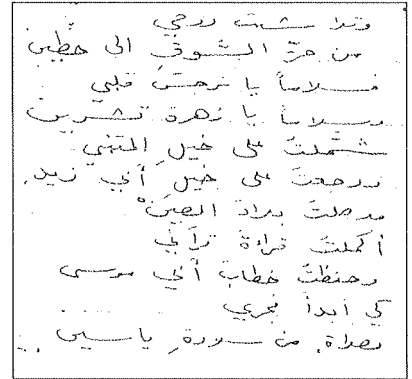 وتلاشت روحي
من حرّ الشوق الى حطين
فسلاماً يا نرجس قلبي
وسلاماً يا زهرة تشرين
على خيل المتنبي
ورجعت على خيل أبي زيد
وصلت بلاد الصين
أكملت قراءة
وحفظت خطاب أبي موسى
كي أبدأ فجري
بصلاة من سورة ياسين